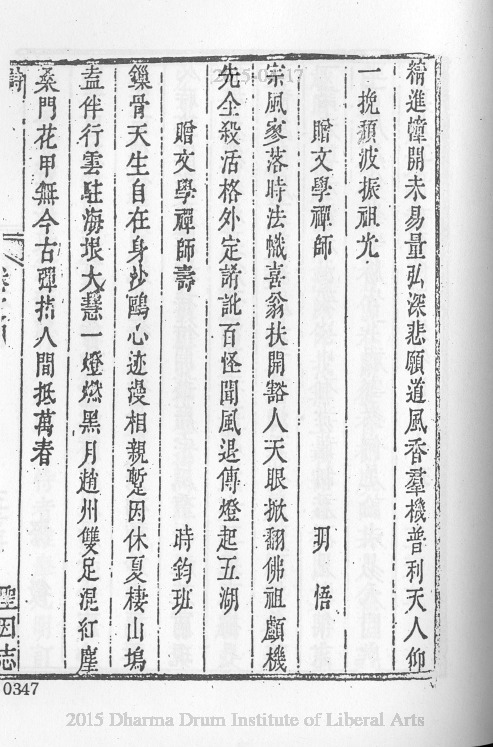 精進幢開未易量弘深悲願道風香羣機普利天人仰
一挽頹波振祖光
贈文學禪師 明悟
宗風寥落時法幟喜翁扶開豁人天眼掀翻佛祖顱機
先全殺活格外定諸訛百怪聞風退傳燈起五湖
贈文學禪師壽 時鈞班
鏁骨天生自在身沙鷗心迹漫相親蹔因休夏棲山塢
盍伴行雲駐海垠大慧一燈燃黑月趙州雙足混紅塵
桑門花甲無今古彈指人間抵萬春
詩 卷之四 聖因志
0347
2015 Dharma Drum Institute of Liberal Arts